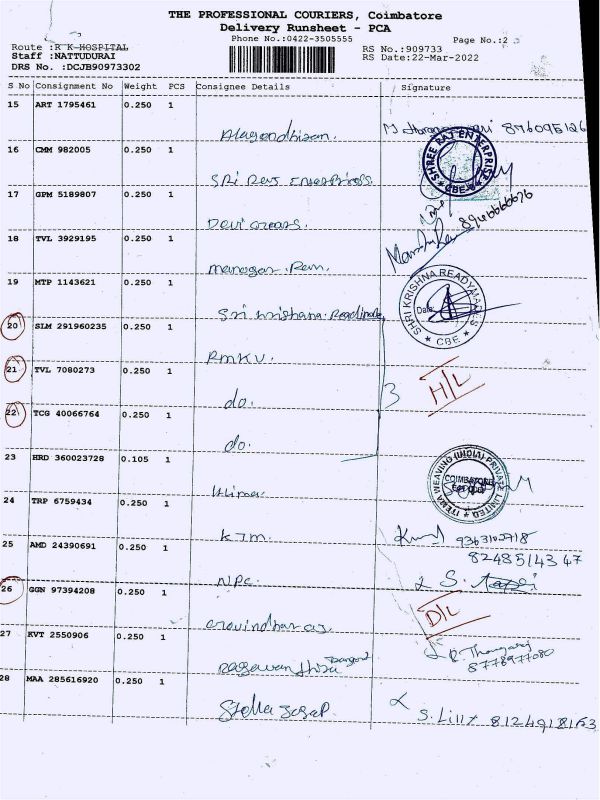 THE PROFESSIONAL COURIERS, Coimbatore
Delivery Runsheet - PCA
Phone No.:0422-3505555
Page No.:2
Route :R K HOSPITAL
RS No.:909733
Staff :NATTUDURAI
RS Date:22-Mar-2022
DRS No. :DCJB90973302
S No Consignment No Weight PCS Consignee Details Signature
15 ART 1795461 0.250 1
Alagendhiran.
16 CMM 982005 0.250 1
SHREE RAJ ENTERPRISE CBE
Sri Raj Enterprises.
17 GPM 5189807 0.250 1
8946666676
Devi
18 TVL 3929195 0.250 1
manogar. Ram.
19 MTP 1143621 0.250 1
SHRI KRISHNA READYMADES CBE
Date:
Sri Krishana
20 SLM 291960235 0.250 1
RMKV.
21 TVL 7080273 0.250 1
3 H/L
do.
22 TCG 40066764 0.250 1
do.
23 HRD 360023728 0.105 1
ITEMA WEAVING (INDIA) PRIVATE LIMITED
COIMBATORE
24 TRP 6759434 0.250 1
KJM.
9363102718
25 AMD 24390691 0.250 1
8248514347
NPC.
S.
26 GGN 97394208 0.250 1
D/L
aravindhar
27 KVT 2550906 0.250 1
R Thangaraj
8778977080
28 MAA 285616920 0.250 1
Stella Josep.
S. Lilly 8124918163